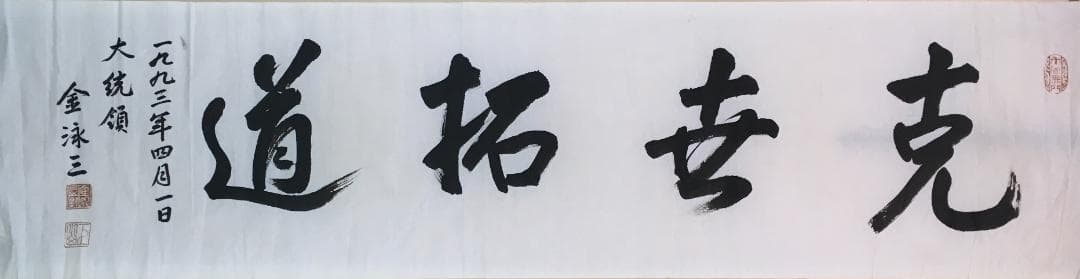 克世拓道
一九九三年四月一日
大統領
金泳三